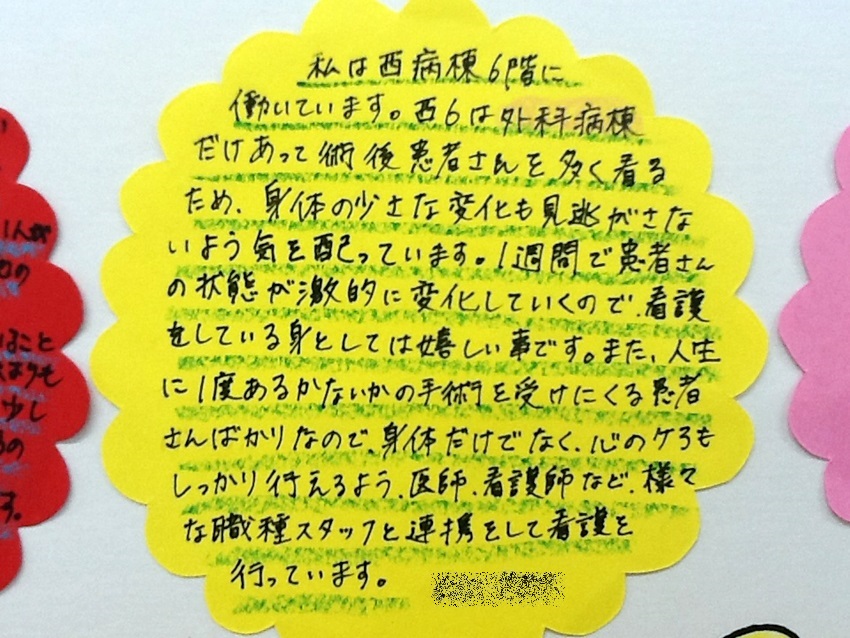 私は西病棟6階に
働いています。西6は外科病棟
だけあって術後患者さんを多く看る
ため、身体の少さな変化も見逃がさな
いよう気を配っています。1週間で患者さん
の状態が激的に変化していくので、看護
をしている身としては嬉しい事です。また、人生
に1度あるかないかの手術を受けにくる患者
さんばかりなので、身体だけでなく、心のケアも
しっかり行えるよう、医師、看護師など、様々
な職種スタッフと連携をして看護を
行っています。